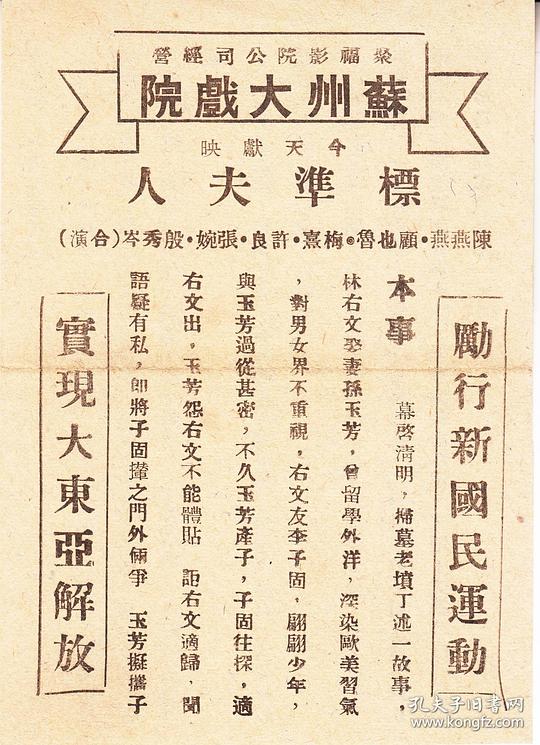 聚福影院公司經營
蘇州大戲院
今天獻映
標準夫人
陳燕燕•顧也魯•梅熹•許良•張婉•殷秀岑(合演)
勵行新國民運動
本事　幕啓清明，掃墓老墳丁述一故事，
林右文娶妻孫玉芳，曾留學外洋，深染歐美習氣
，對男女界不重視，右文友李子固，翩翩少年，
與玉芳過從甚密，不久玉芳產子，子固往探，適
右文出，玉芳怨右文不能體貼　詎右文適歸，聞
語疑有私，卽將子固攆之門外倆爭　玉芳擬攜子
實現大東亞解放
孔夫子旧书网
www.kongfz.com